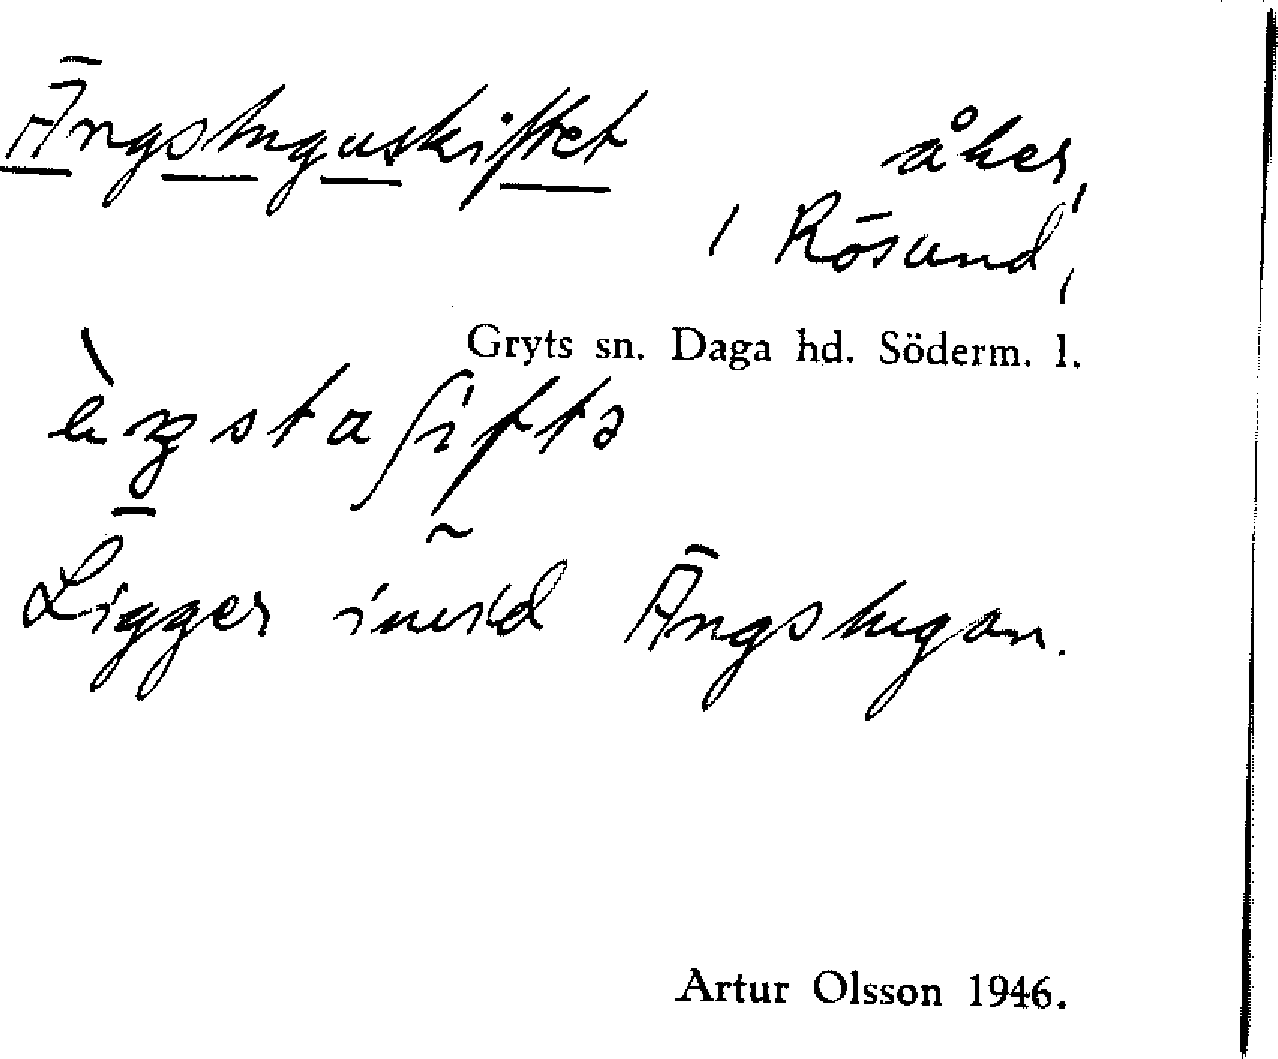 Ängstuguskiftet åker,
/ Rösund,
Gryts sn. Daga hd. Söderm. l.
Ligger invid Ängstugan.
Artur Olsson 1946.